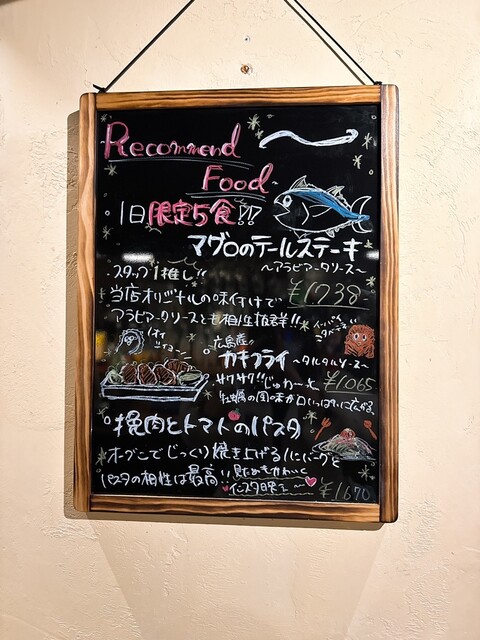 Recommend
Food
1日限定5食!!
マグロのテールステーキ
〜アラビアータソース〜
・スタッフ1推し!!
¥1738-
当店オリジナルの味付けで
アラビアータソースとも相性抜群!!
広島産の
カキフライ 〜タルタルソース〜
サクサク!!じゅわーっと ¥1065
牡蠣の国の味が口いっぱいに広がる。
挽肉とトマトのパスタ
オーブンでじっくり焼き上げるハンバーグと
パスタの相性は最高!! 見ためもかわいく
インスタ映え〜
¥1670